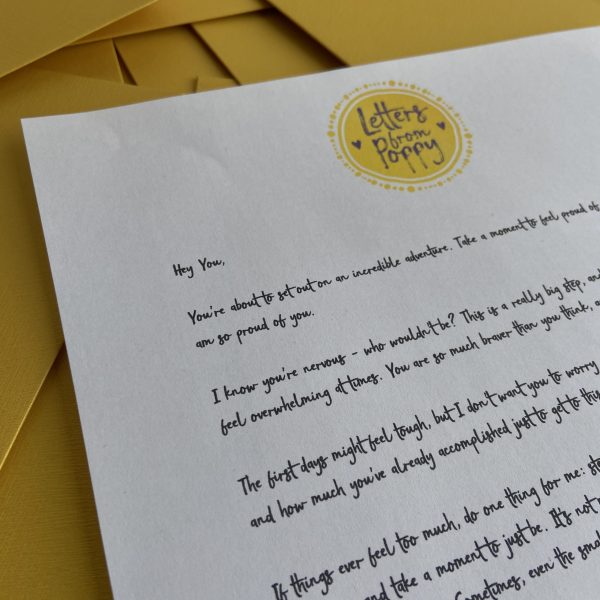 Letters
from
Poppy
Hey You,
You're about to set out on an incredible adventure. Take a moment to feel proud of
am so proud of you.
I know you're nervous - who wouldn't be? This is a really big step, and
feel overwhelming at times. You are so much braver than you think, a
The first days might feel tough, but I don't want you to worry
and how much you've already accomplished just to get to this
If things ever feel too much, do one thing for me: st
and take a moment to just be. It's not
Sometimes, even the smal